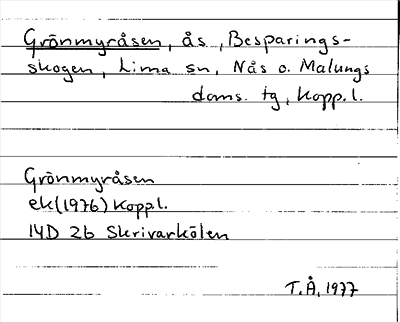 Grönmyråsen, ås, Besparings-
skogen, Lima sn, Nås o. Malungs
doms. tg, Kopp.l.
Grönmyråsen
ek(1976) Koppl.
14D 2b Skrivarkölen
T.Å, 1977